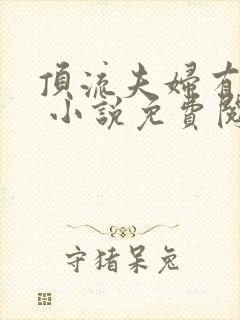 頂流夫婦有
小説免費閱
守猪呆兔